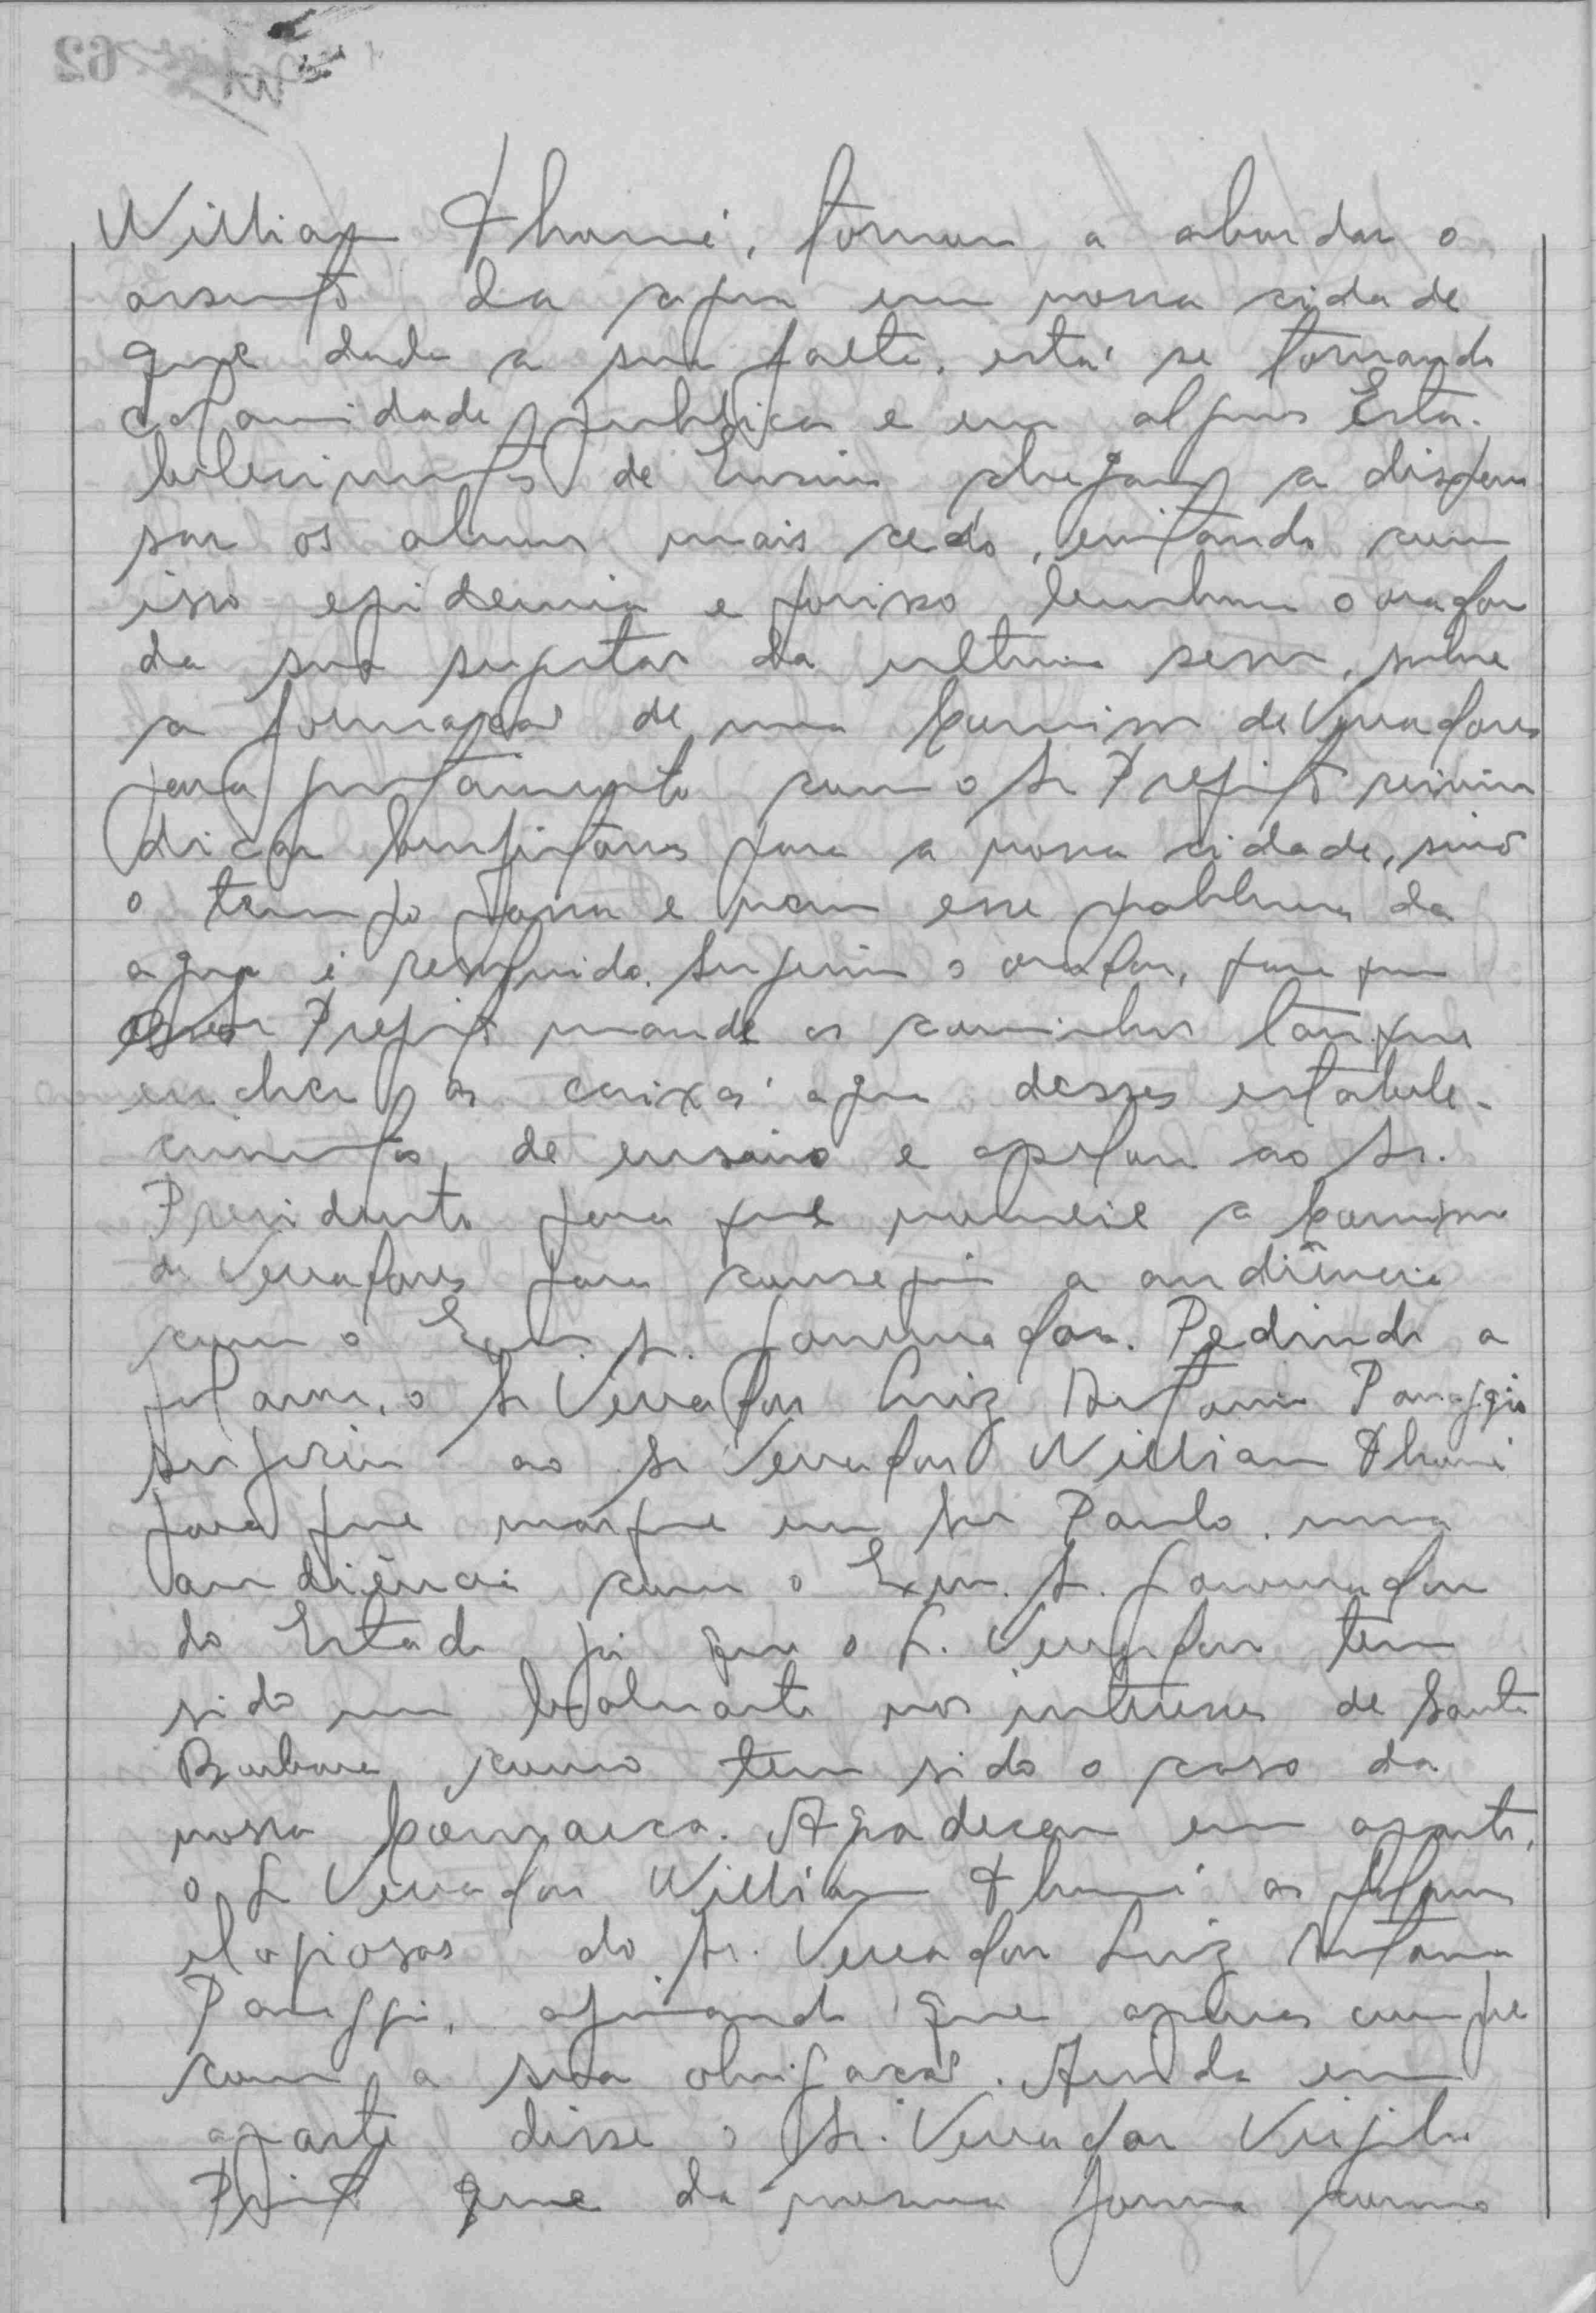 William Thomé, tornou a abordar o
assunto da agua em nossa cidade
que dada a sua falta, está se tornando
calamidade publica e em alguns Esta-
belecimentos de Ensino chegam a dispen
sar os alunos mais cedo, evitando com
isso epidemia e porisso lembrou o orador
da sua sujestão da ultima sessão, sobre
a formação de uma Comissão de Vereadores
para juntamente com o Sr Prefeito reivin
dicar benfeitorias para a nossa cidade, sinão
o tempo passa e nem esse problema da
agua é resolvido. Sugeriu o orador, para que
o Sr Prefeito mande os caminhões tanque
encher as caixas agua desses estabele-
cimentos, de ensino e apelou ao Sr.
Presidente para que nomeie a Comissão
de Vereadores para conseguir a audiência
com o Exmo. Sr. Governador. Pedindo a
palavra, o Sr Vereador Luiz Antonio Panaggio
sugeriu ao Sr Vereador William Thomé
para que marque em São Paulo, uma
audiência com o Exmo. Sr. Governador
do Estado já que o Sr. Vereador tem
sido um baluarte nos interesses de Santa
Barbara como tem sido o caso da
nossa Comarca. Agradeceu em aparte,
o Sr Vereador William Thomé as palavras
elogiosas do Sr. Vereador Luiz Antonio
Panaggio, afirmando que apenas cumpre
com a sua obrigação. Ainda em
aparte disse o Sr. Vereador Virgilio
que da mesma forma como